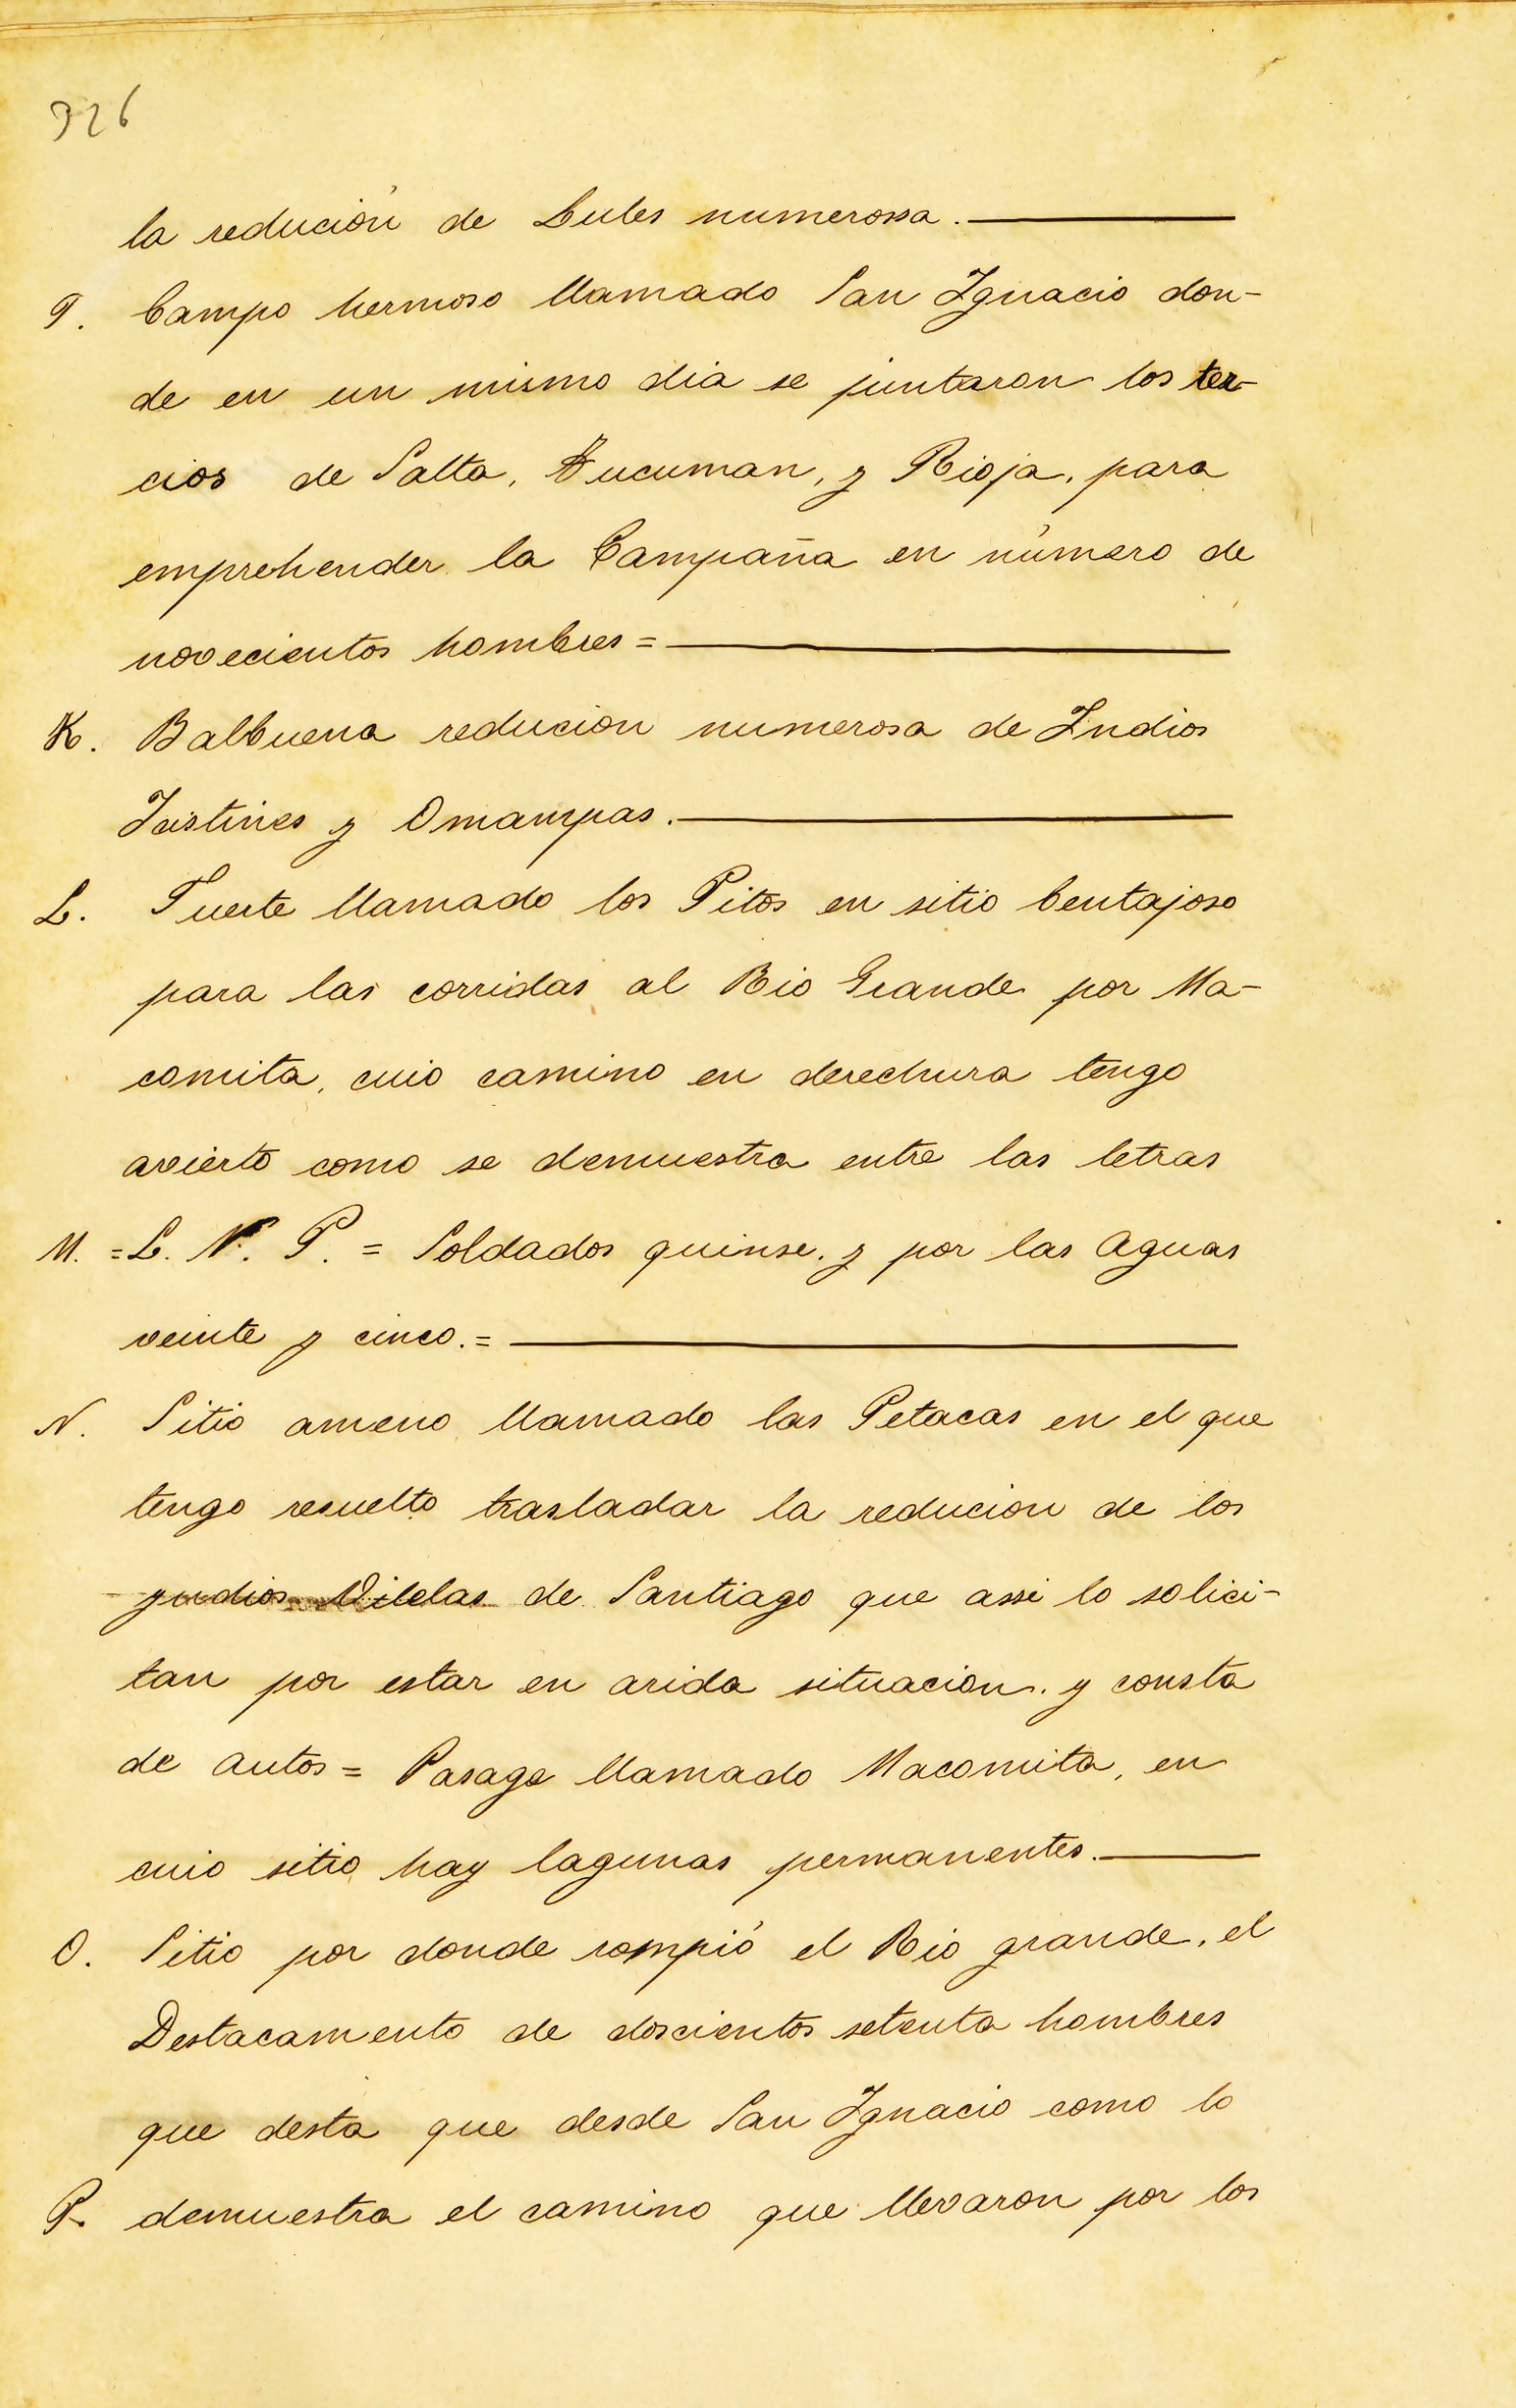 326
la redución de Lules numerosa.
J. Campo hermoso llamado San Ignacio don-
de en un mismo dia se juntaron los ter-
cios de Salta, Tucuman, y Rioja, para
emprehender la Campaña en número de
novecientos hombres =
K. Balbuena reducion numerosa de Indios
Isistines y Omampas.
L. Fuerte llamado los Pitos en sitio bentajoso
para las corridas al Rio Grande por Ma-
comita, cuio camino en derechura tengo
avierto como se demuestra entre las letras
M. = L. N. P. = Soldados quinse, y por las Aguas
veinte y cinco. =
N. Sitio ameno llamado las Petacas en el que
tengo resuelto trasladar la reducion de los
yndios Vilelas de Santiago que assi lo solici-
tan por estar en arida situacion, y consta
de autos = Parage llamado Macomita, en
cuio sitio hay lagunas permanentes.
O. Sitio por donde rompió el Rio grande, el
Destacamento de doscientos setenta hombres
que desta que desde San Ignacio como lo
P. demuestra el camino que llevaron por los